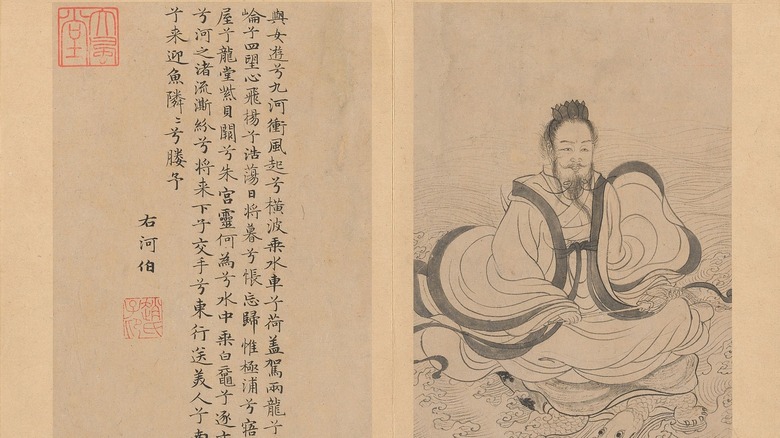 與女遊兮九河衝風起兮橫波乘水車兮荷盖駕兩龍兮
崘兮四望心飛揚兮浩蕩日將暮兮悵忘歸惟極浦兮寤
屋兮龍堂紫貝闕兮朱宮靈何為兮水中乘白黿兮逐
兮河之渚流澌紛兮將来下子交手兮東行送美人兮南
兮来迎魚隣〻兮媵予
右河伯
大風堂
趙氏子昂